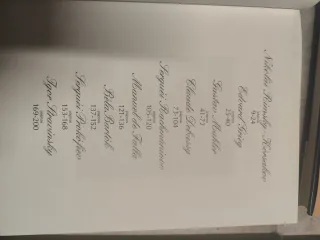 Nikolai Rimsky-Korsakov
6-24
Edvard Grieg
25-40
Gustav Mahler
41-71
Claude Debussy
73-104
Serguéi Rachmaninov
105-120
Manuel de Falla
121-136
Béla Bartók
137-152
Serguéi Prokofiev
153-168
Igor Stravinsky
169-200